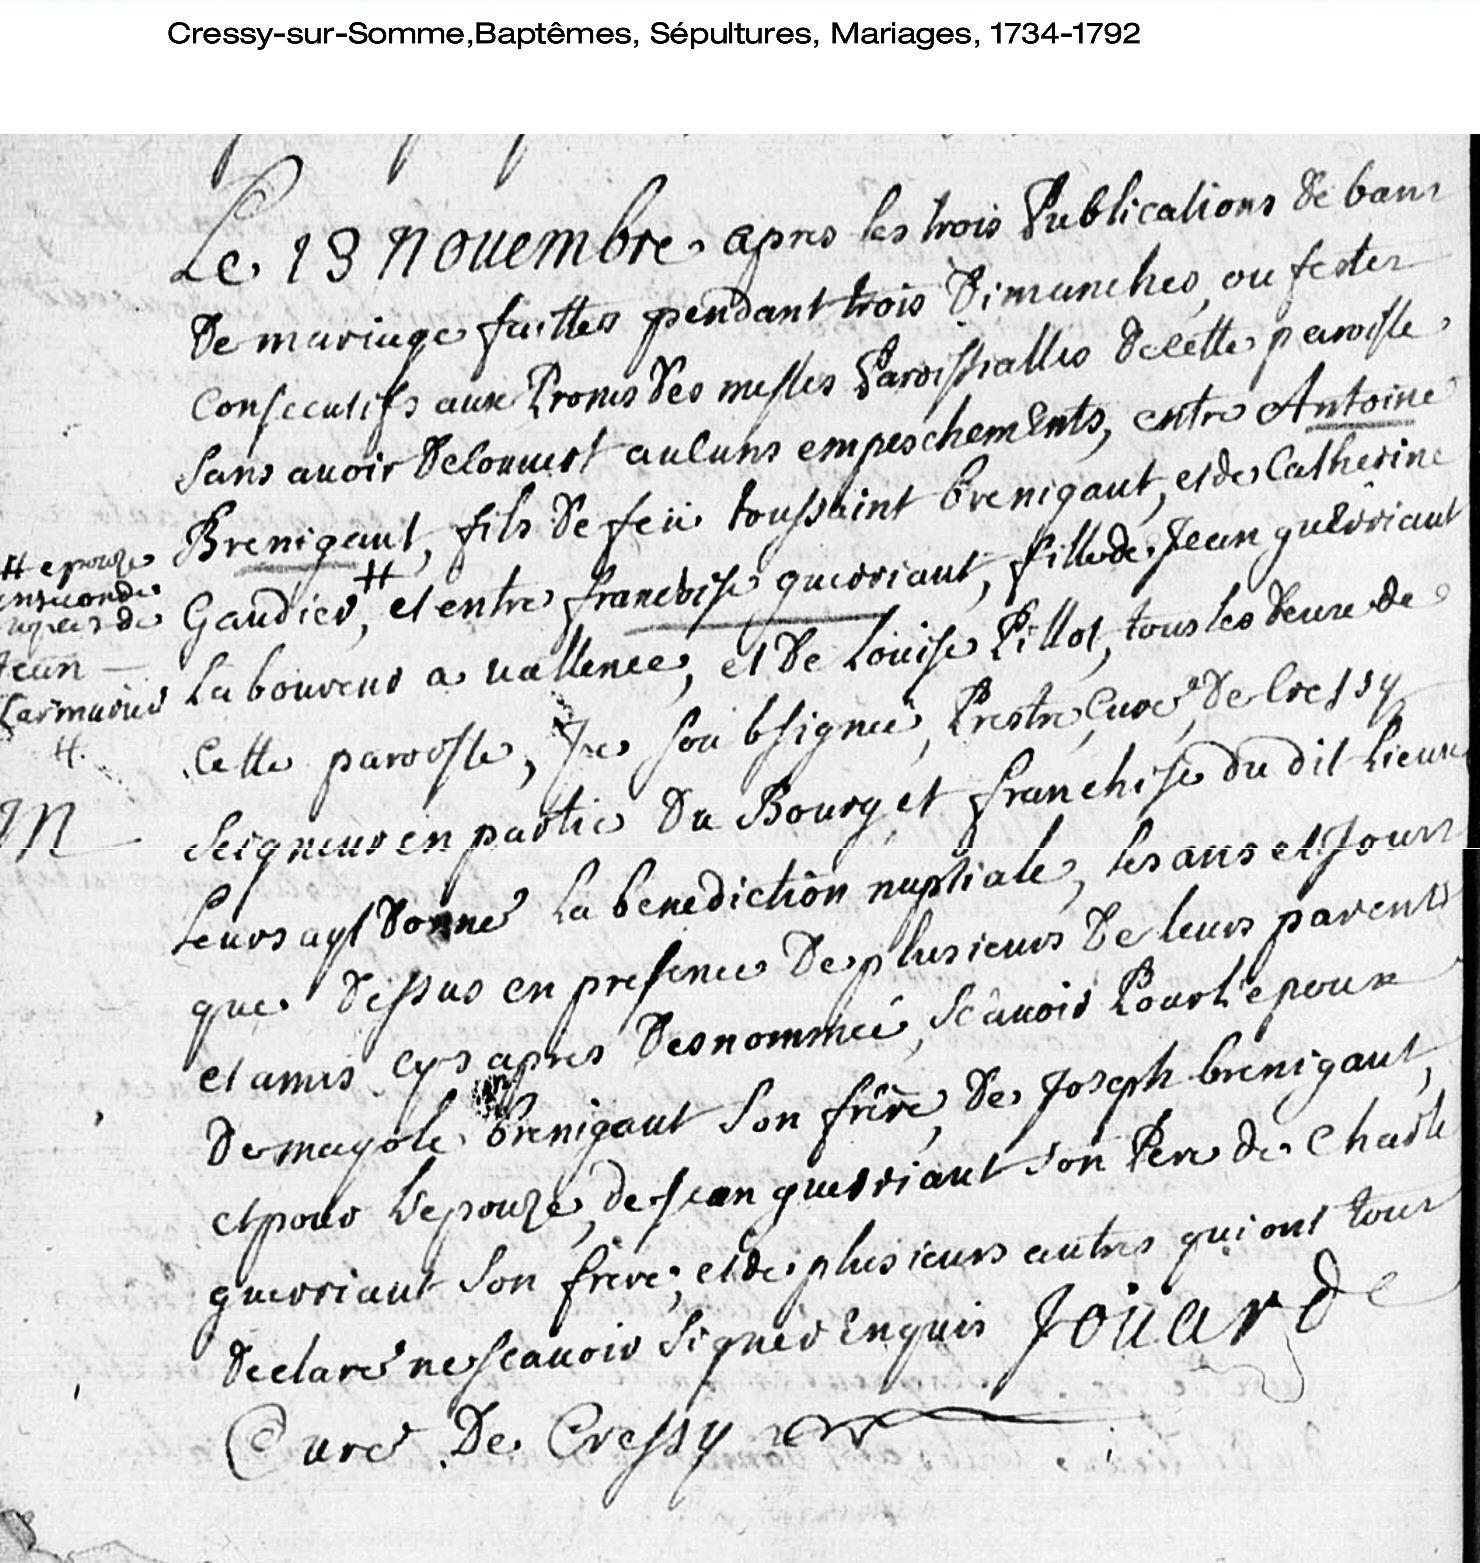 Cressy-sur-Somme,Baptêmes, Sépultures, Mariages, 1734-1792
Le 13 Novembre apres les trois Publications de bans
De mariage faittes pendant trois Dimanches, ou festes
Consecutifs aux Prones Des messes Paroissialles De cette paroisse
Sans avoir Decouvert auCuns empeschements, entre Antoine
Brenigaut, fils De feü toussaint brenigaut, et de Catherine
Gaudier #, et entre francoise guerriaut, fille de Jean guerriaut
# epouze
en seconde
de
Jean
#
M
Laboureur a vallence, et De Louise Pillot, tous les Deux de
Cette paroisse, Je soubsigneé, Prestre, Curé, De Cressy
Seigneur en partie Du Bourg et franchise du dit Lieux
Leurs ayt Donné La benediction nuptiale, les ans et Jours
que Dessus en presence De plusieurs De leurs parents
et amis cys apres Desnommeé, Scâvoir Pour l'epoux
De mayole brenigaut Son frere, De Joseph brenigaut,
et pour l'epouze, de Jean guerriaut son Pere de Charle
guerriaut Son frere, et de plusieurs autres qui ont tous
Declaré ne scavoir signer Enquis Joüard
Curé De Cressy